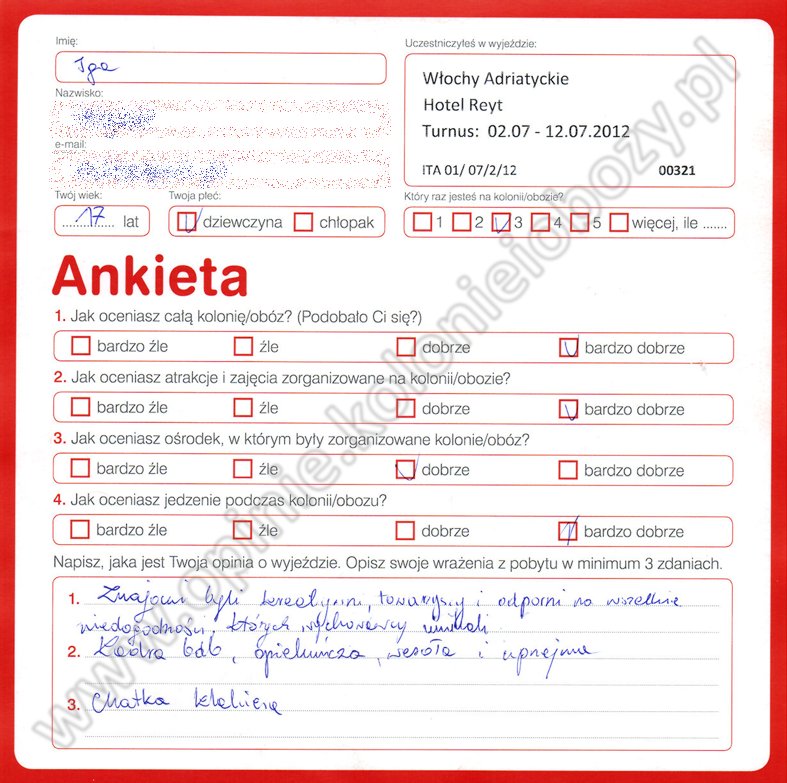 Imię:
Iga
Nazwisko:
e-mail:
Twój wiek:
17 lat
Twoja płeć:
dziewczyna chłopak
Uczestniczyłeś w wyjeździe:
Włochy Adriatyckie
Hotel Reyt
Turnus: 02.07 - 12.07.2012
ITA 01/ 07/2/12 00321
Który raz jesteś na kolonii/obozie?
1 2 3 4 5 więcej, ile .......
Ankieta
1. Jak oceniasz całą kolonię/obóz? (Podobało Ci się?)
bardzo źle źle dobrze bardzo dobrze
2. Jak oceniasz atrakcje i zajęcia zorganizowane na kolonii/obozie?
bardzo źle źle dobrze bardzo dobrze
3. Jak oceniasz ośrodek, w którym były zorganizowane kolonie/obóz?
bardzo źle źle dobrze bardzo dobrze
4. Jak oceniasz jedzenie podczas kolonii/obozu?
bardzo źle źle dobrze bardzo dobrze
Napisz, jaka jest Twoja opinia o wyjeździe. Opisz swoje wrażenia z pobytu w minimum 3 zdaniach.
1. Znajomi byli kreatywni, towarzyscy i odporni na wszelkie
niedogodności, których wychowawcy unikali
2. Kadra bdb, opiekuńcza, wesoła i uprzejma
3. Chatka
www.opinie.kolonieiobozy.pl